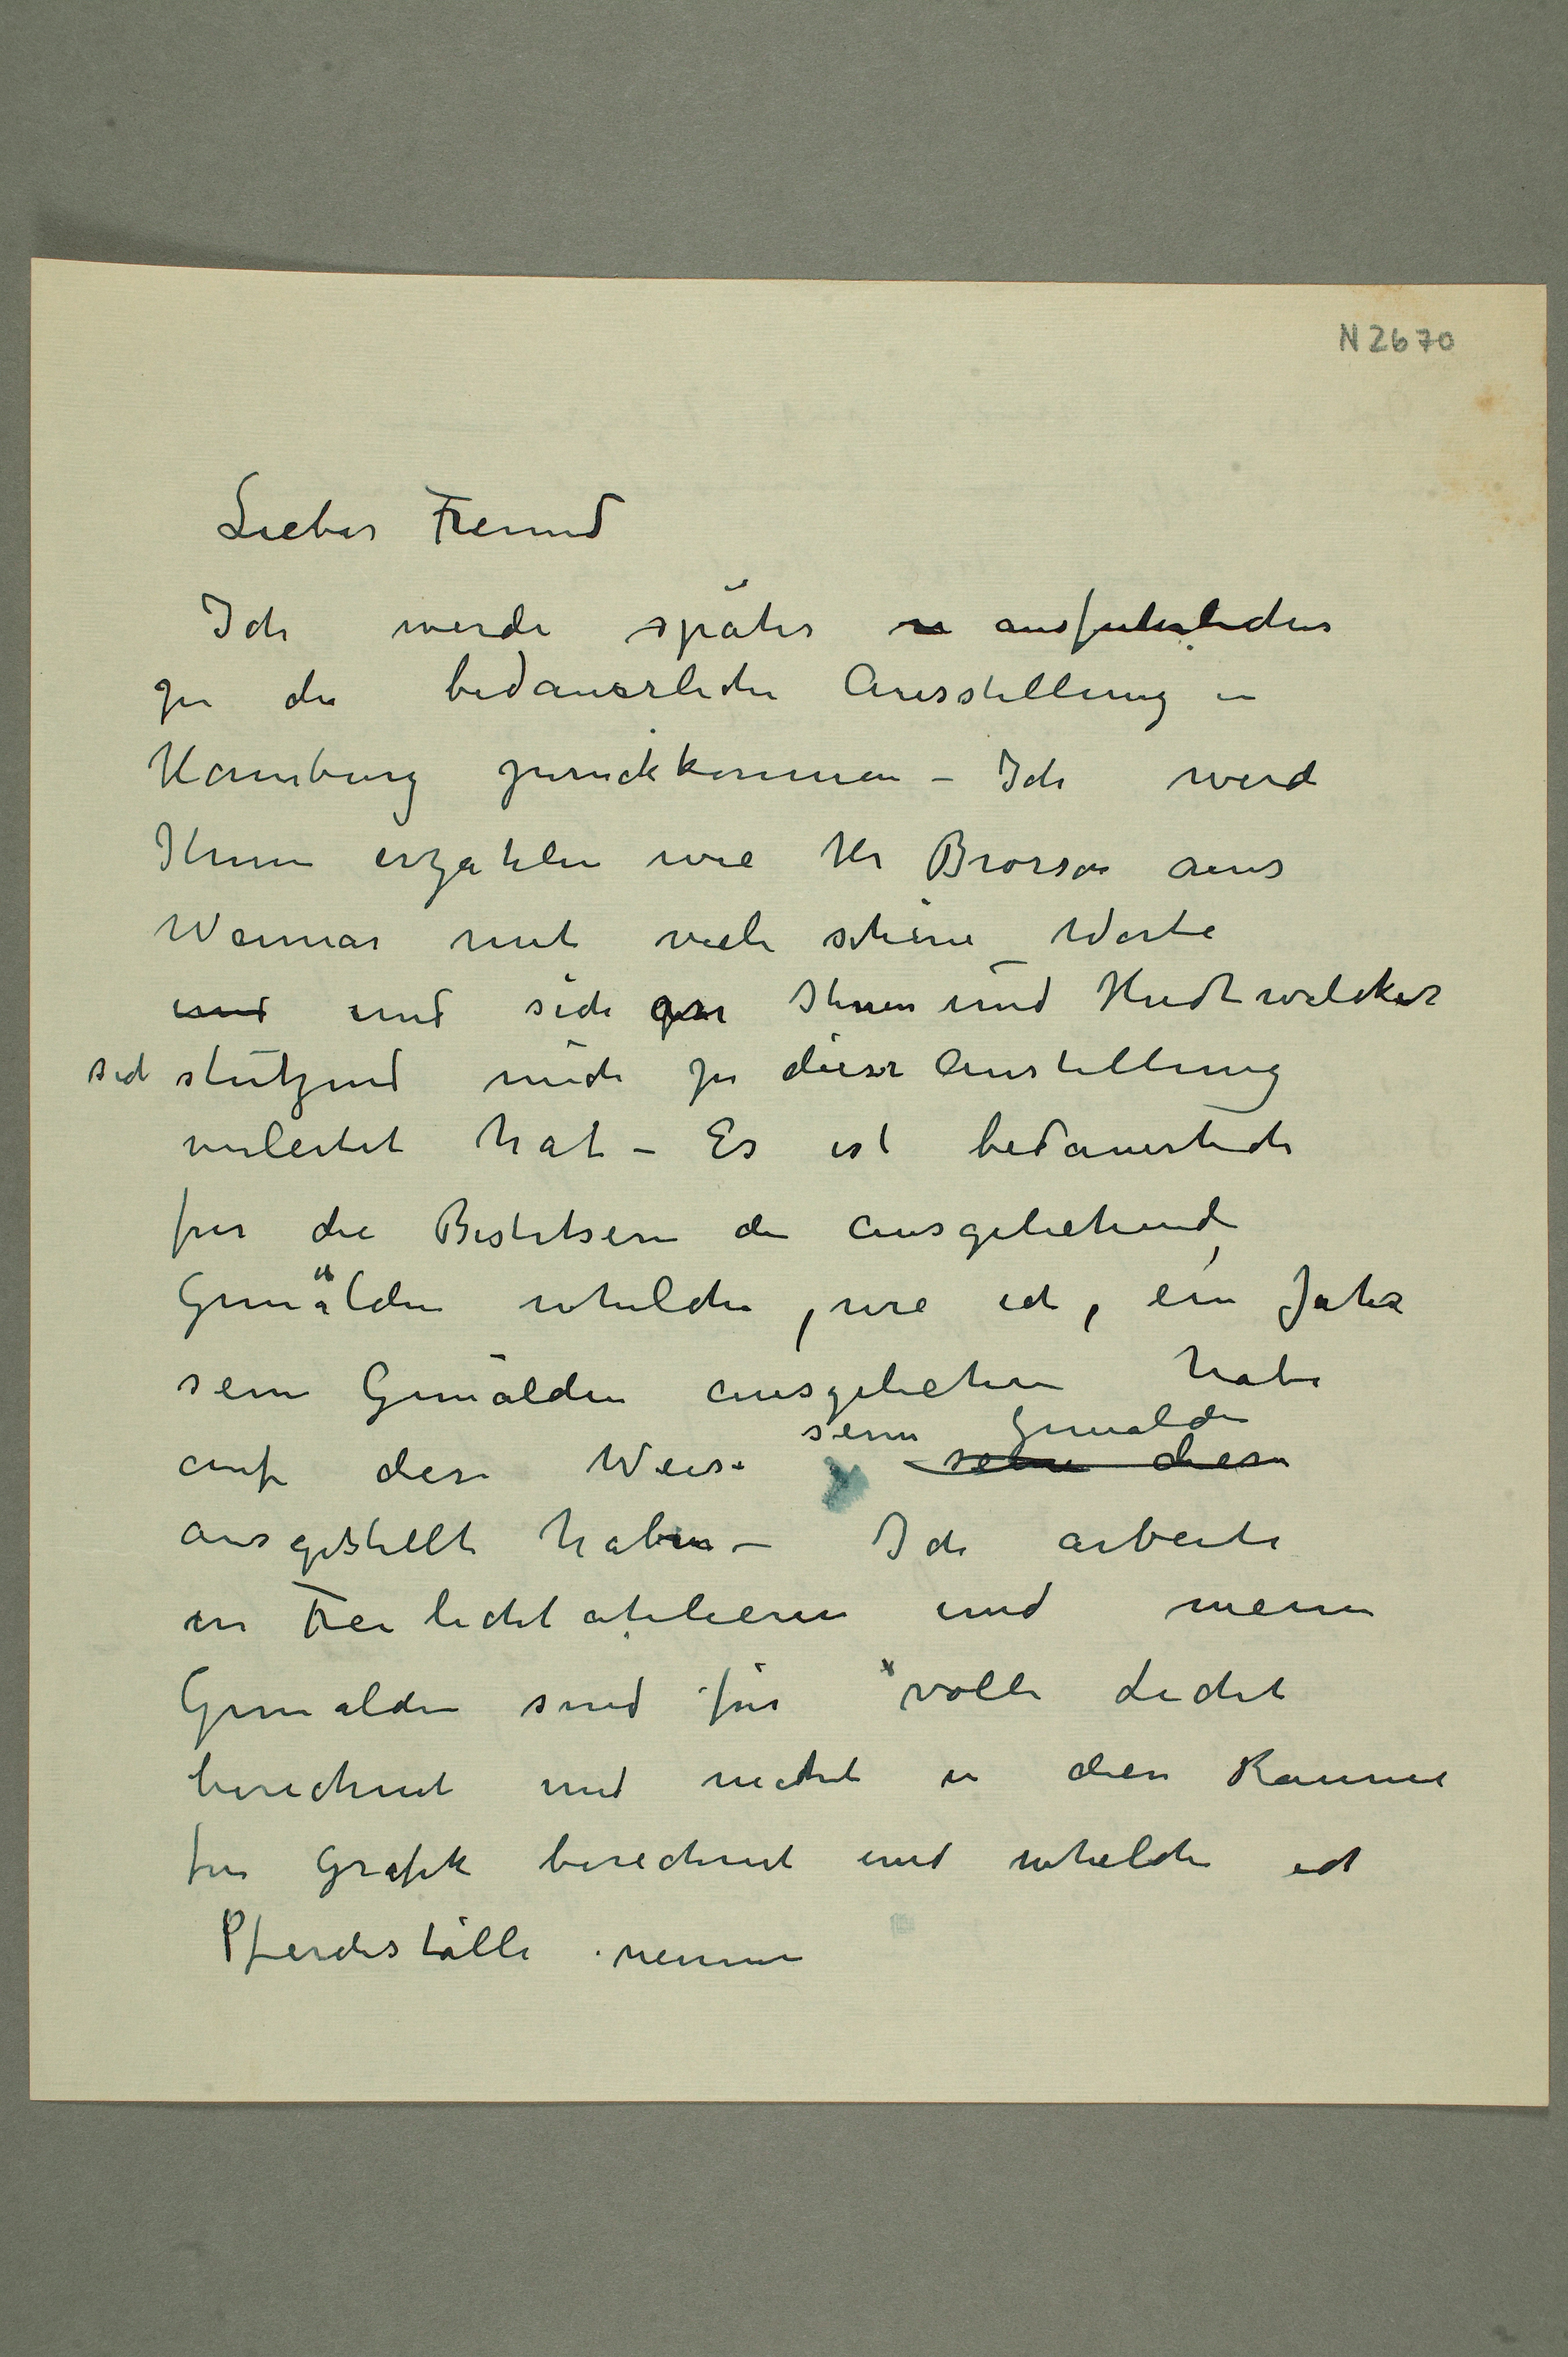 N 2670
Lieber Freund
Ich werde später ausfuhrlicher
zu die bedauerliche Ausstellung in
Hamburg zurückkommen – Ich werde
Ihnen erzahlen wie Hr Brorson aus
Weimar mit viele schöne Worte
und und sich zu Ihnen und Hudtwalcker
sich stützend mich zu dieser Austellung
verleitet hat – Es ist bedauerlich
für die Besitsern der ausgeliehende
Gemälden whelche, wie ich, ein Jahr
seine Gemälden ausgeliehen habe
auf diese Weise seine Gemälde
seine diese
ausgestellt haben – Ich arbeite
in Freilichtatelieren und meine
Gemälden sind für volle Licht
berechnet und nicht in den Raume
fur Grafik berechnet und whelche ich
Pferdeställe nenne